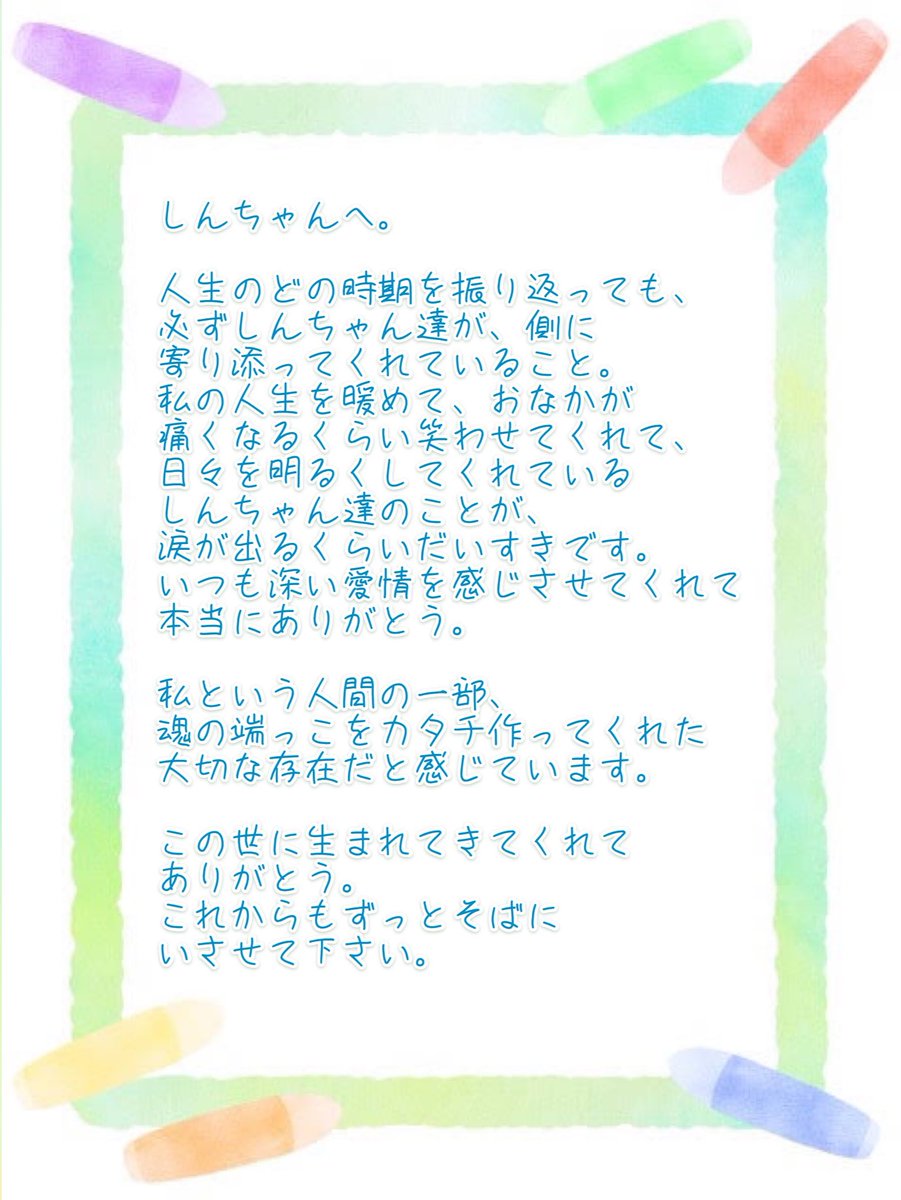 しんちゃんへ。
人生のどの時期を振り返っても、
必ずしんちゃん達が、側に
寄り添ってくれていること。
私の人生を暖めて、おなかが
痛くなるくらい笑わせてくれて、
日々を明るくしてくれている
しんちゃん達のことが、
涙が出るくらいだいすきです。
いつも深い愛情を感じさせてくれて
本当にありがとう。
私という人間の一部、
魂の端っこをカタチ作ってくれた
大切な存在だと感じています。
この世に生まれてきてくれて
ありがとう。
これからもずっとそばに
いさせて下さい。